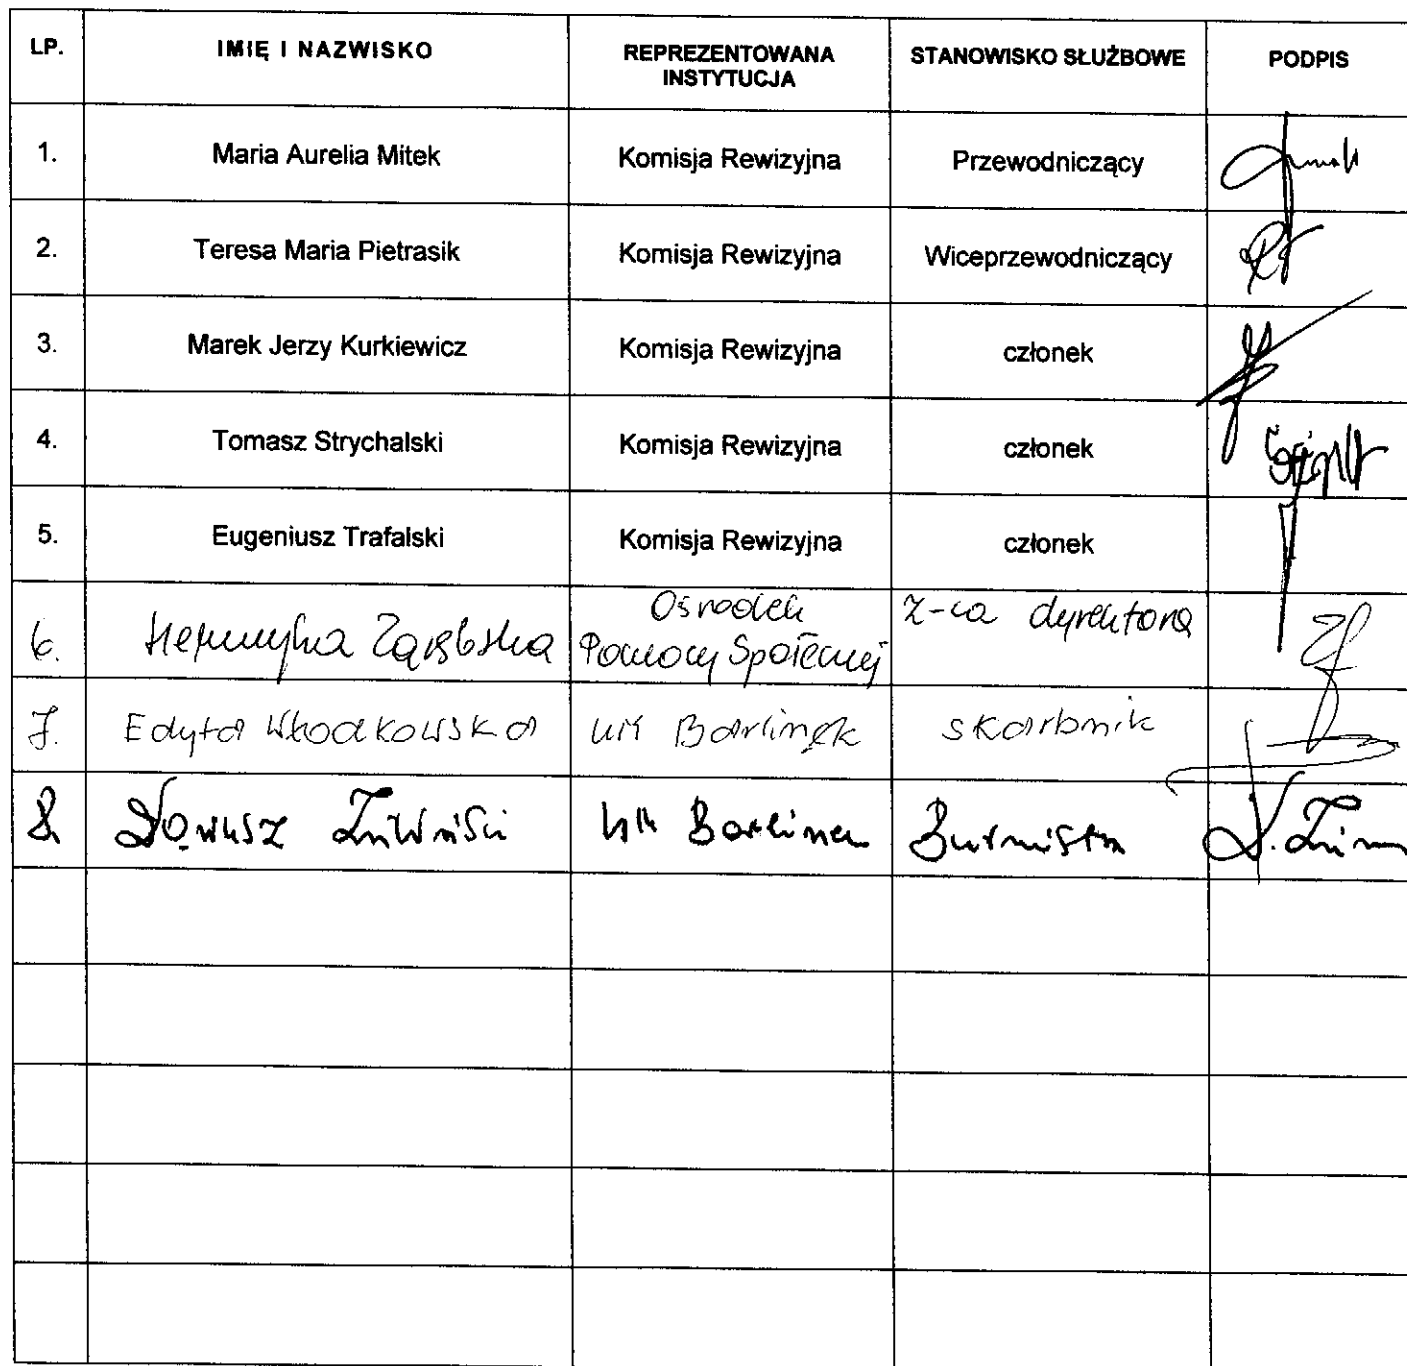 LP. IMIĘ I NAZWISKO REPREZENTOWANA INSTYTUCJA STANOWISKO SŁUŻBOWE PODPIS
1. Maria Aurelia Mitek Komisja Rewizyjna Przewodniczący
2. Teresa Maria Pietrasik Komisja Rewizyjna Wiceprzewodniczący
3. Marek Jerzy Kurkiewicz Komisja Rewizyjna członek
4. Tomasz Strychalski Komisja Rewizyjna członek
5. Eugeniusz Trafalski Komisja Rewizyjna członek
6. Ośrodek Pomocy Społecznej z-ca dyrektora
7. Edyta Włodkowska Barlinek skarbnik
8. Dariusz Barlinek Burmistrz